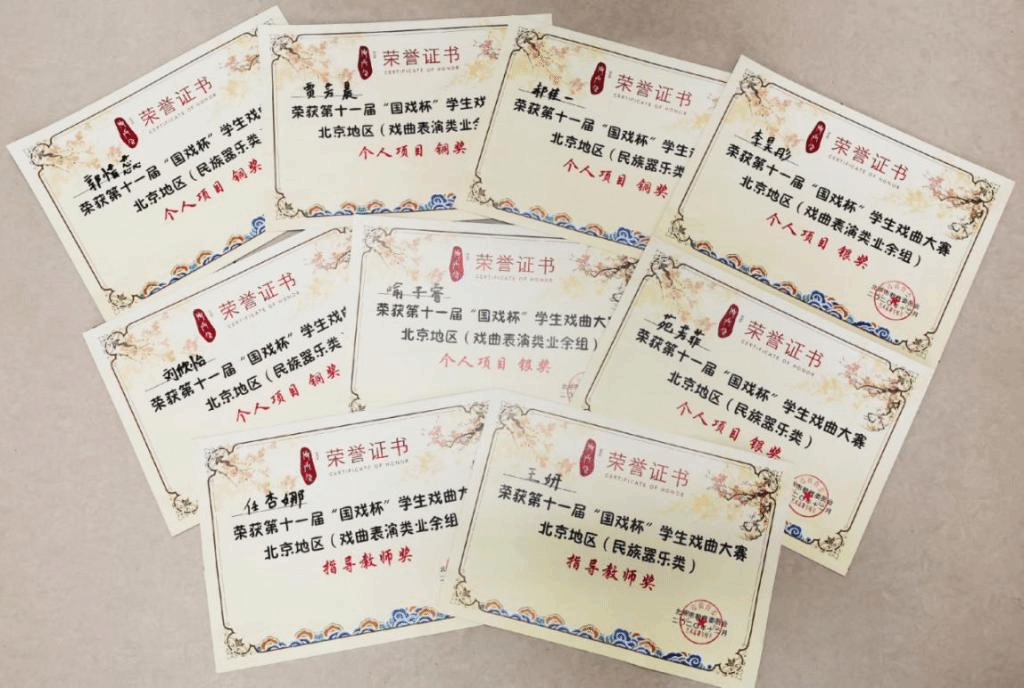 荣誉证书
CERTIFICATE OF HONOR
荣获第十一届“国戏杯”学生戏
北京地区（民族器乐类
个人项目 铜奖
荣誉证书
CERTIFICATE OF HONOR
贾芳晨
荣获第十一届“国戏杯”学生戏
北京地区（戏曲表演类业余
个人项目 铜奖
荣誉证书
CERTIFICATE OF HONOR
郝佳一
荣获第十一届“国戏杯”学生
北京地区（民族器乐类
个人项目 铜奖
荣誉证书
CERTIFICATE OF HONOR
李昊彤
荣获第十一届“国戏杯”学生戏曲大赛
北京地区（戏曲表演类业余组）
个人项目 银奖
荣誉证书
CERTIFICATE OF HONOR
刘欣怡
荣获第十一届“国戏杯”学生戏曲
北京地区（民族器乐类
个人项目 铜奖
荣誉证书
CERTIFICATE OF HONOR
喻子睿
荣获第十一届“国戏杯”学生戏曲大
北京地区（戏曲表演类业余组）
个人项目 银奖
荣誉证书
CERTIFICATE OF HONOR
范芳菲
荣获第十一届“国戏杯”学生戏曲大赛
北京地区（民族器乐类）
个人项目 银奖
荣誉证书
CERTIFICATE OF HONOR
任杏娜
荣获第十一届“国戏杯”学生戏曲大
北京地区（戏曲表演类业余组
指导教师奖
荣誉证书
CERTIFICATE OF HONOR
王妍
荣获第十一届“国戏杯”学生戏曲大赛
北京地区（民族器乐类）
指导教师奖